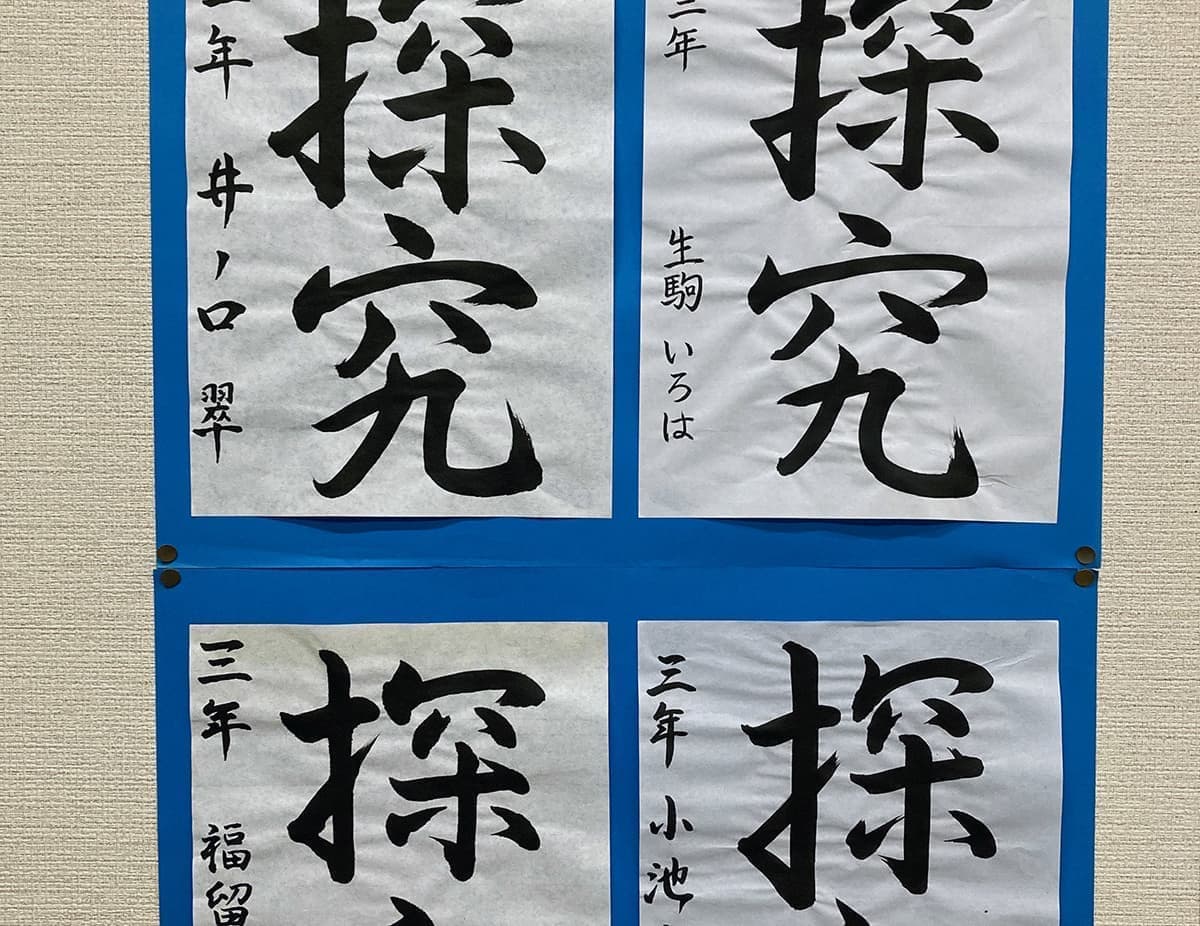 探究
三年 井ノ口 翠
探究
三年 生駒 いろは
探
三年 福留
探
三年 小池